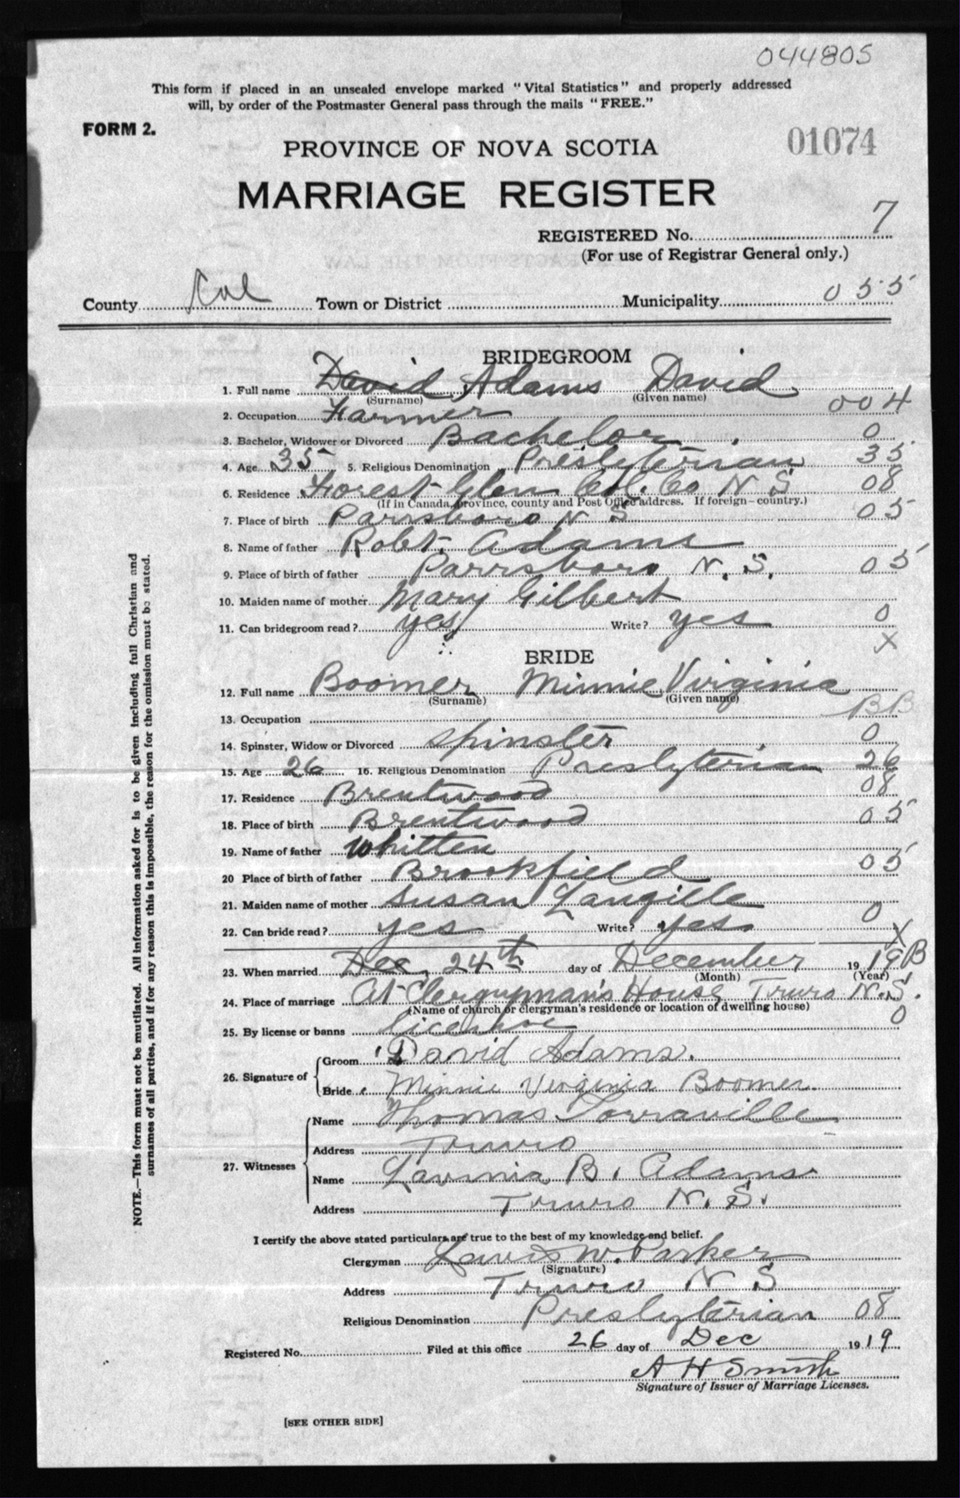 044805
This form if placed in an unsealed envelope marked "Vital Statistics" and properly addressed
will, by order of the Postmaster General pass through the mails "FREE."
FORM 2.
PROVINCE OF NOVA SCOTIA
01074
MARRIAGE REGISTER
REGISTERED No. 7
(For use of Registrar General only.)
County Col Town or District Municipality 055
BRIDEGROOM
1. Full name David Adams David
(Surname) (Given name)
2. Occupation Farmer 004
3. Bachelor, Widower or Divorced Bachelor 0
4. Age 35 5. Religious Denomination Presbyterian 35
6. Residence Forest Glen Col. Co N S 08
(If in Canada, province, county and Post Office address. If foreign—country.)
7. Place of birth Parrsboro N S 05
8. Name of father Robt. Adams
9. Place of birth of father Parrsboro N. S. 05
10. Maiden name of mother Mary Gilbert
11. Can bridegroom read? yes Write? yes 0
X
BRIDE
12. Full name Boomer Minnie Virginia
(Surname) (Given name)
13. Occupation BB
14. Spinster, Widow or Divorced Spinster 0
15. Age 26 16. Religious Denomination Presbyterian 26
17. Residence Brentwood 08
18. Place of birth Brentwood 05
19. Name of father Whitten
20 Place of birth of father Brookfield 05
21. Maiden name of mother Susan Langille
22. Can bride read? yes Write? yes. 0
X
23. When married Dec. 24th day of December 19 19 B
(Month) (Year)
24. Place of marriage At Clergyman's House Truro N.S.
(Name of church or clergyman's residence or location of dwelling house)
25. By license or banns 0
26. Signature of Groom David Adams.
Bride Minnie Virginia Boomer.
27. Witnesses Name Thomas Lorraville
Address Truro
Name Lavinia B. Adams
Address Truro N. S.
I certify the above stated particulars are true to the best of my knowledge and belief.
Clergyman W. Parker
(Signature)
Address Truro N S
Religious Denomination Presbyterian 08
Registered No. Filed at this office 26 day of Dec 19 19
A H Smith
Signature of Issuer of Marriage Licenses.
[SEE OTHER SIDE]
NOTE.—This form must not be mutilated. All information asked for is to be given including full Christian and
surnames of all parties, and if for any reason this is impossible, the reason for the omission must be stated.